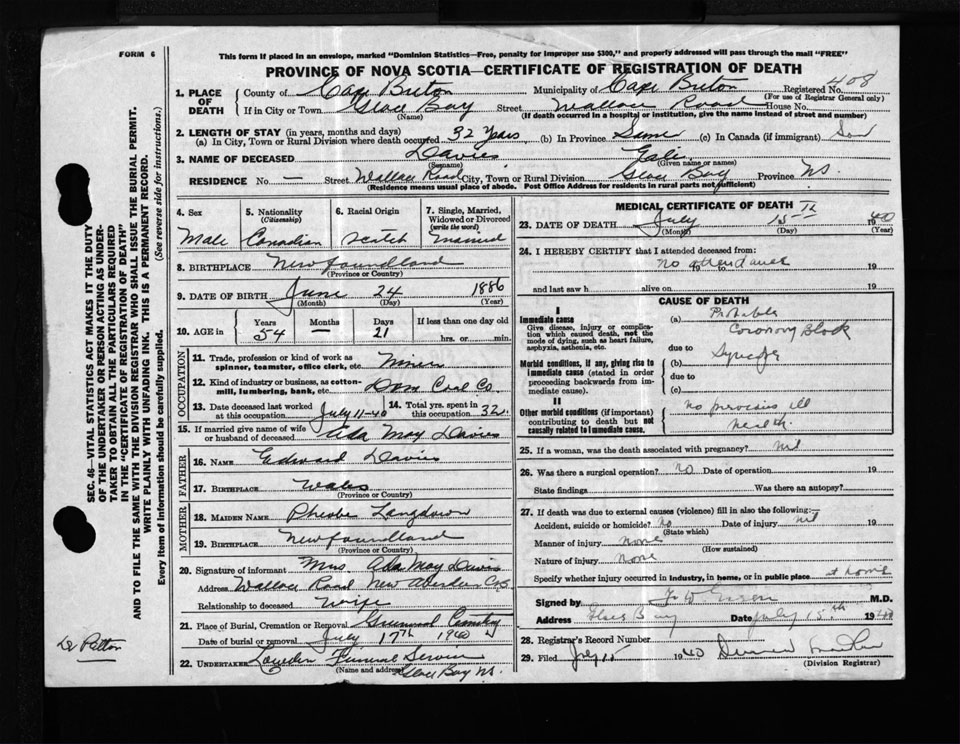 FORM 6
This form if placed in an envelope, marked "Dominion Statistics—Free, penalty for improper use $300," and properly addressed will pass through the mail "FREE"
PROVINCE OF NOVA SCOTIA—CERTIFICATE OF REGISTRATION OF DEATH
408
1. PLACE OF DEATH
County of Cape Breton Municipality of Cape Breton Registered No.
(For use of Registrar General only)
If in City or Town Glace Bay Street Wallace Road House No.
(Name) (If death occurred in a hospital or institution, give the name instead of street and number)
2. LENGTH OF STAY (in years, months and days)
(a) In City, Town or Rural Division where death occurred 32 years (b) In Province Same (c) In Canada (if immigrant)
3. NAME OF DECEASED Davies
(Surname) (Given name or names)
RESIDENCE No — Street Wallace Road City, Town or Rural Division Glace Bay Province NS.
(Residence means usual place of abode. Post Office Address for residents in rural parts not sufficient)
4. Sex Male
5. Nationality (Citizenship) Canadian
6. Racial Origin Scotch
7. Single, Married, Widowed or Divorced (write the word) married
8. BIRTHPLACE Newfoundland
(Province or Country)
9. DATE OF BIRTH June 24 1886
(Month) (Day) (Year)
10. AGE in Years 54 Months — Days 21 If less than one day old hrs. or min.
OCCUPATION
11. Trade, profession or kind of work as spinner, teamster, office clerk, etc. Miner
12. Kind of industry or business, as cotton-mill, lumbering, bank, etc. Dom Coal Co
13. Date deceased last worked at this occupation July 11-40 14. Total yrs. spent in this occupation 32
15. If married give name of wife or husband of deceased Ada May Davies
FATHER
16. NAME Edward Davies
17. BIRTHPLACE Wales
(Province or Country)
MOTHER
18. MAIDEN NAME Pheobe Langdown
19. BIRTHPLACE Newfoundland
(Province or Country)
20. Signature of informant Mrs. Ada May Davies
Address Wallace Road New Aberdeen C.B.
Relationship to deceased Wife
21. Place of Burial, Cremation or Removal Greenwood Cemetery
Date of burial or removal July 17th 1940
22. UNDERTAKER Funeral Service
(Name and address) Glace Bay NS.
MEDICAL CERTIFICATE OF DEATH
23. DATE OF DEATH July 15th 1940
(Month) (Day) (Year)
24. I HEREBY CERTIFY that I attended deceased from:
no attendance 19
and last saw h alive on 19
CAUSE OF DEATH
I
Immediate cause
Give disease, injury or complication which caused death, not the mode of dying, such as heart failure, asphyxia, asthenia, etc.
(a) Probable Coronary Block
due to
Morbid conditions, if any, giving rise to immediate cause (stated in order proceeding backwards from immediate cause).
(b)
due to
(c)
II
Other morbid conditions (if important) contributing to death but not causally related to immediate cause.
no previous ill health.
25. If a woman, was the death associated with pregnancy? nil
26. Was there a surgical operation? no Date of operation 19
State findings Was there an autopsy?
27. If death was due to external causes (violence) fill in also the following:
Accident, suicide or homicide? no Date of injury nil 19
(State which)
Manner of injury none
(How sustained)
Nature of injury none
Specify whether injury occurred in industry, in home, or in public place at home
Signed by M.D.
Address Glace Bay Date July 15th 1940
28. Registrar's Record Number
29. Filed July 15 1940
(Division Registrar)
SEC. 46—VITAL STATISTICS ACT MAKES IT THE DUTY
OF THE UNDERTAKER OR PERSON ACTING AS UNDER-
TAKER TO OBTAIN ALL THE PARTICULARS REQUIRED
IN THE "CERTIFICATE OF REGISTRATION OF DEATH"
AND TO FILE THE SAME WITH THE DIVISION REGISTRAR WHO SHALL ISSUE THE BURIAL PERMIT.
WRITE PLAINLY WITH UNFADING INK. THIS IS A PERMANENT RECORD.
Every item of information should be carefully supplied. (See reverse side for instructions.)
Dr Patton